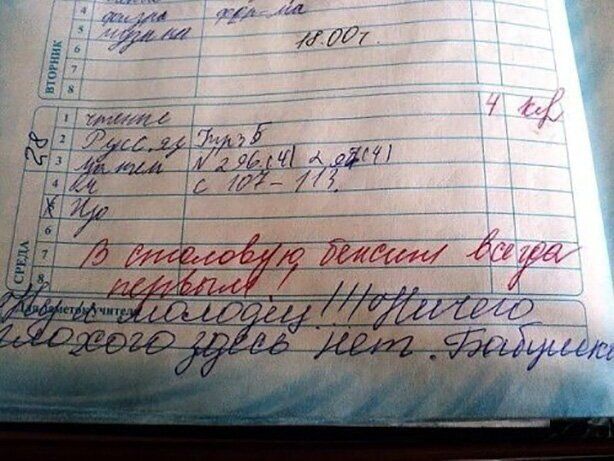 4 физра форма
5 музыка
18.00 г.
6
7
8
ВТОРНИК
28
СРЕДА
1 чтение 4
2 Русс.яз Упр 5
3 матем N 296(4) 297(4)
4 с 107-113
Изо
6
7 В столовую бежит всегда
8 первым!
Для заметок учителя
Ну и молодец!!! Ничего
плохого здесь нет. Бабушка